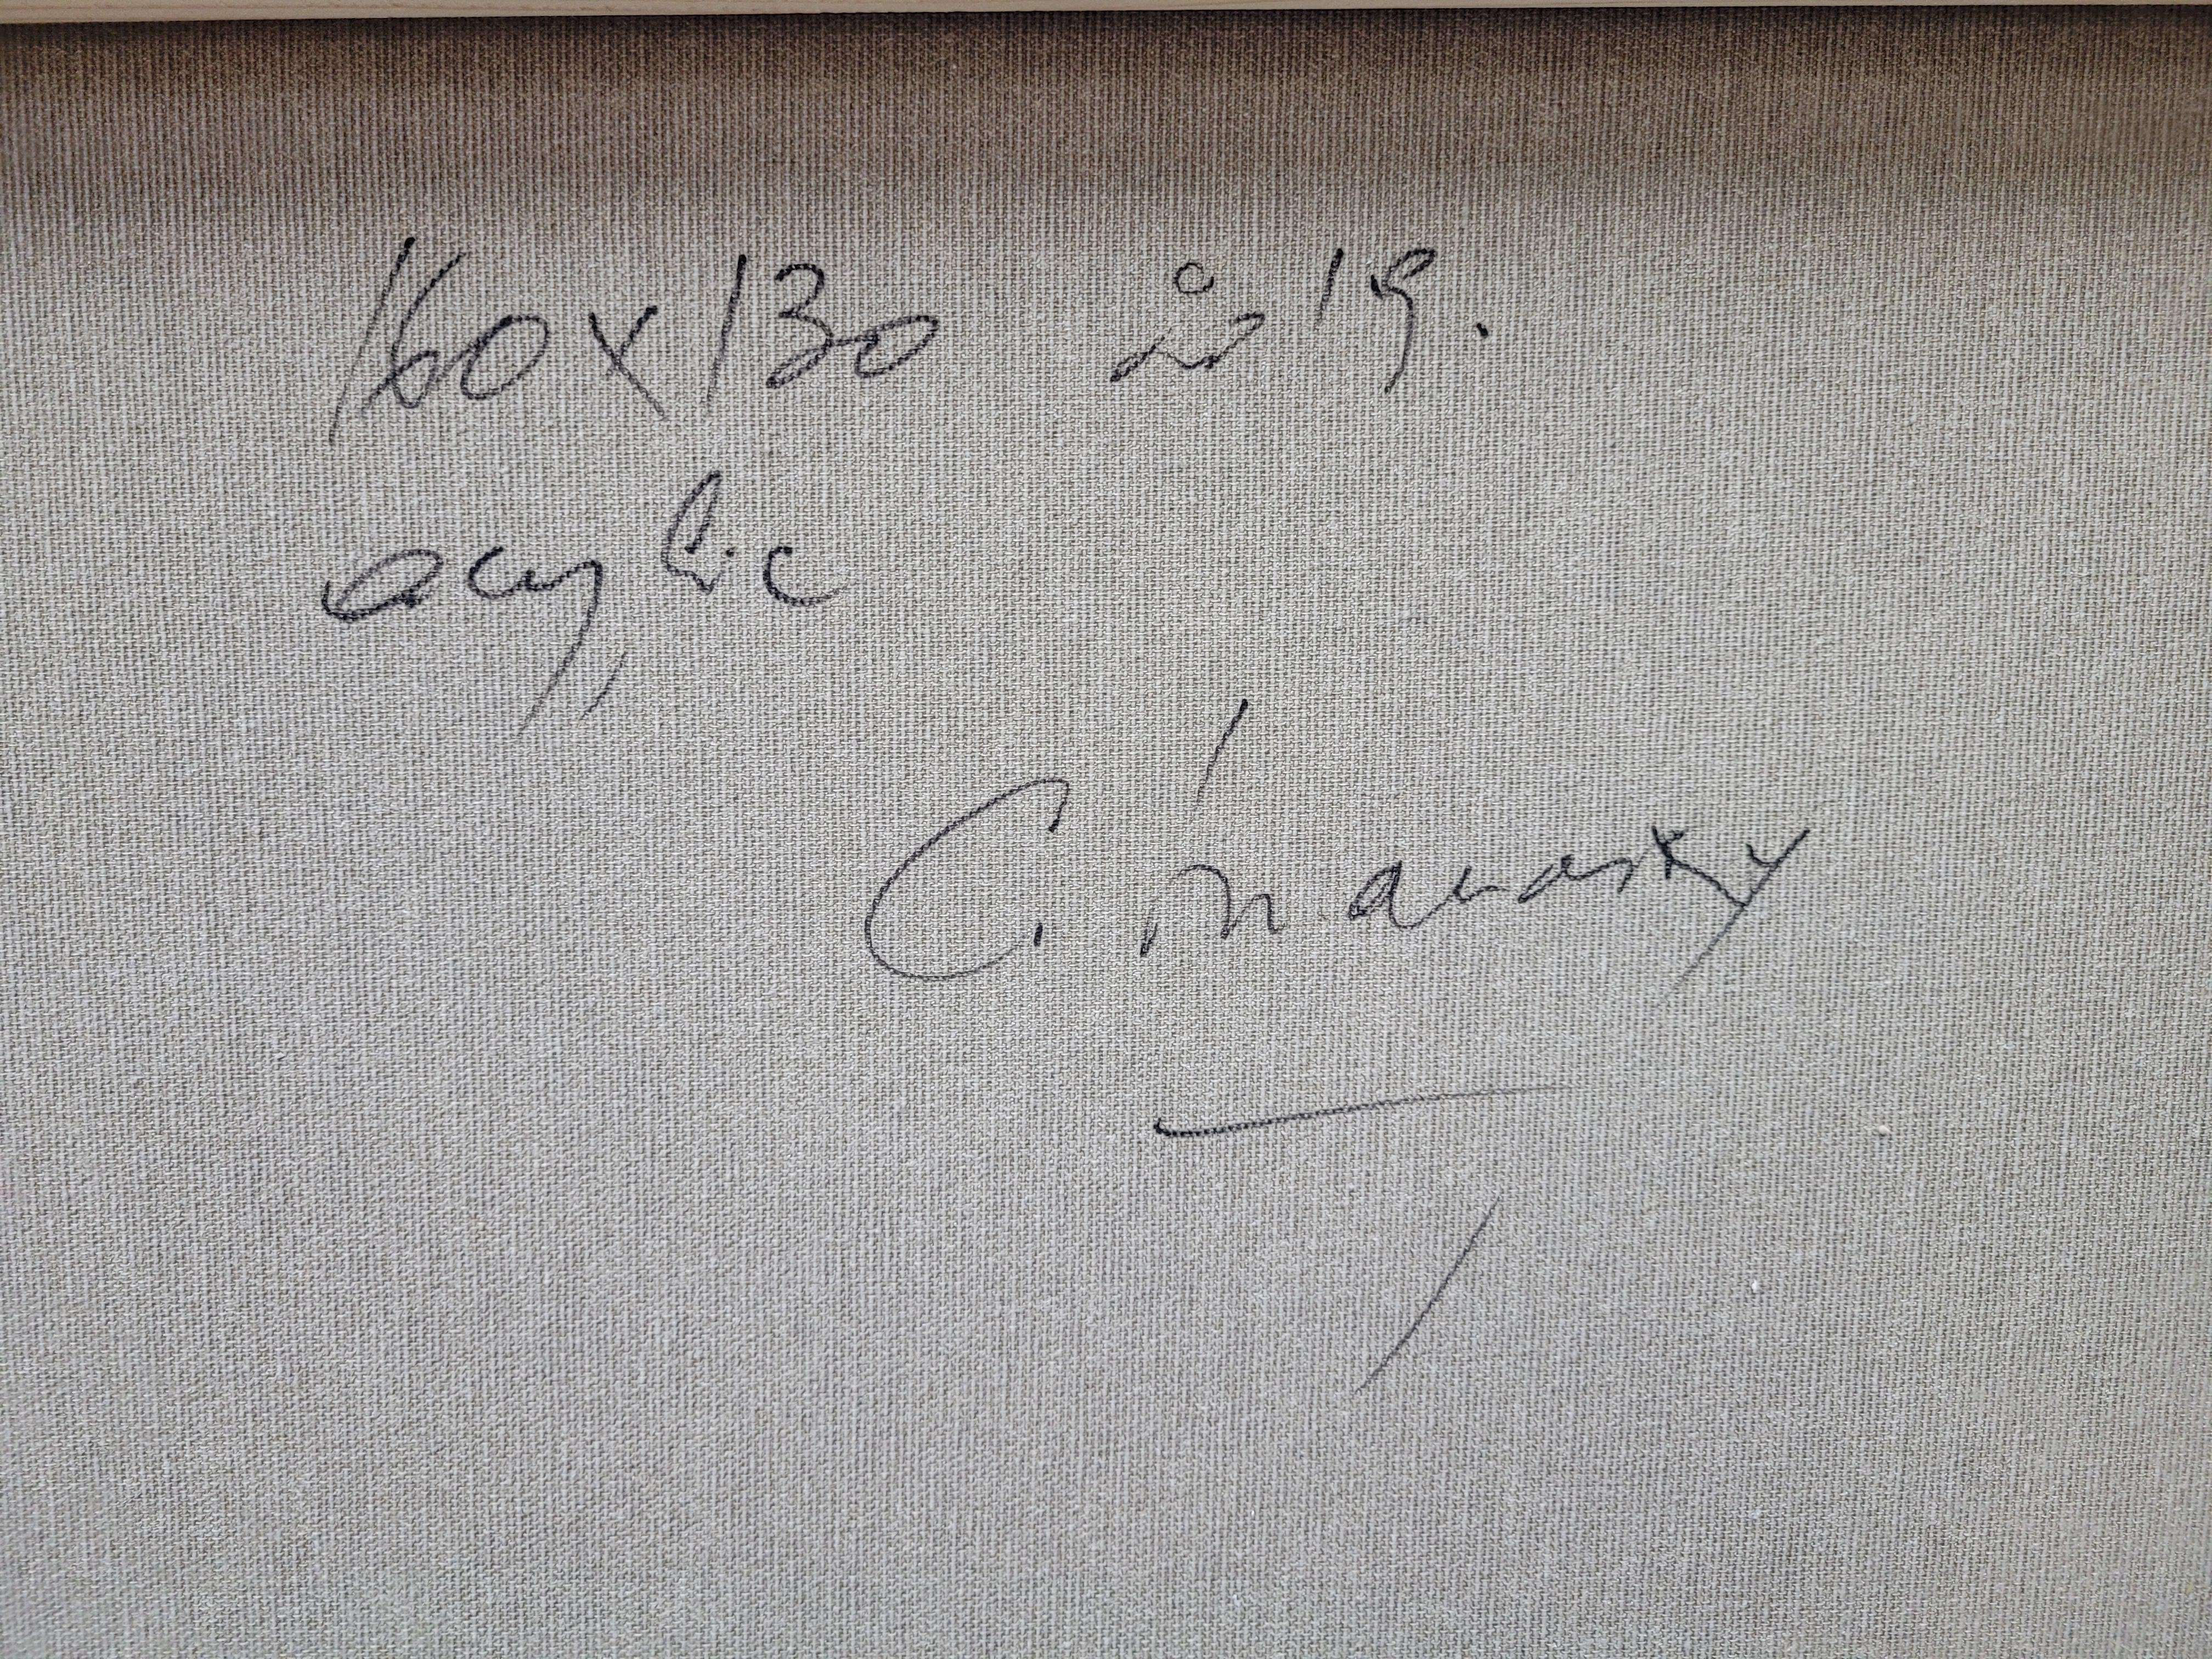 160x130 2019.
acrylic
C. Manasky